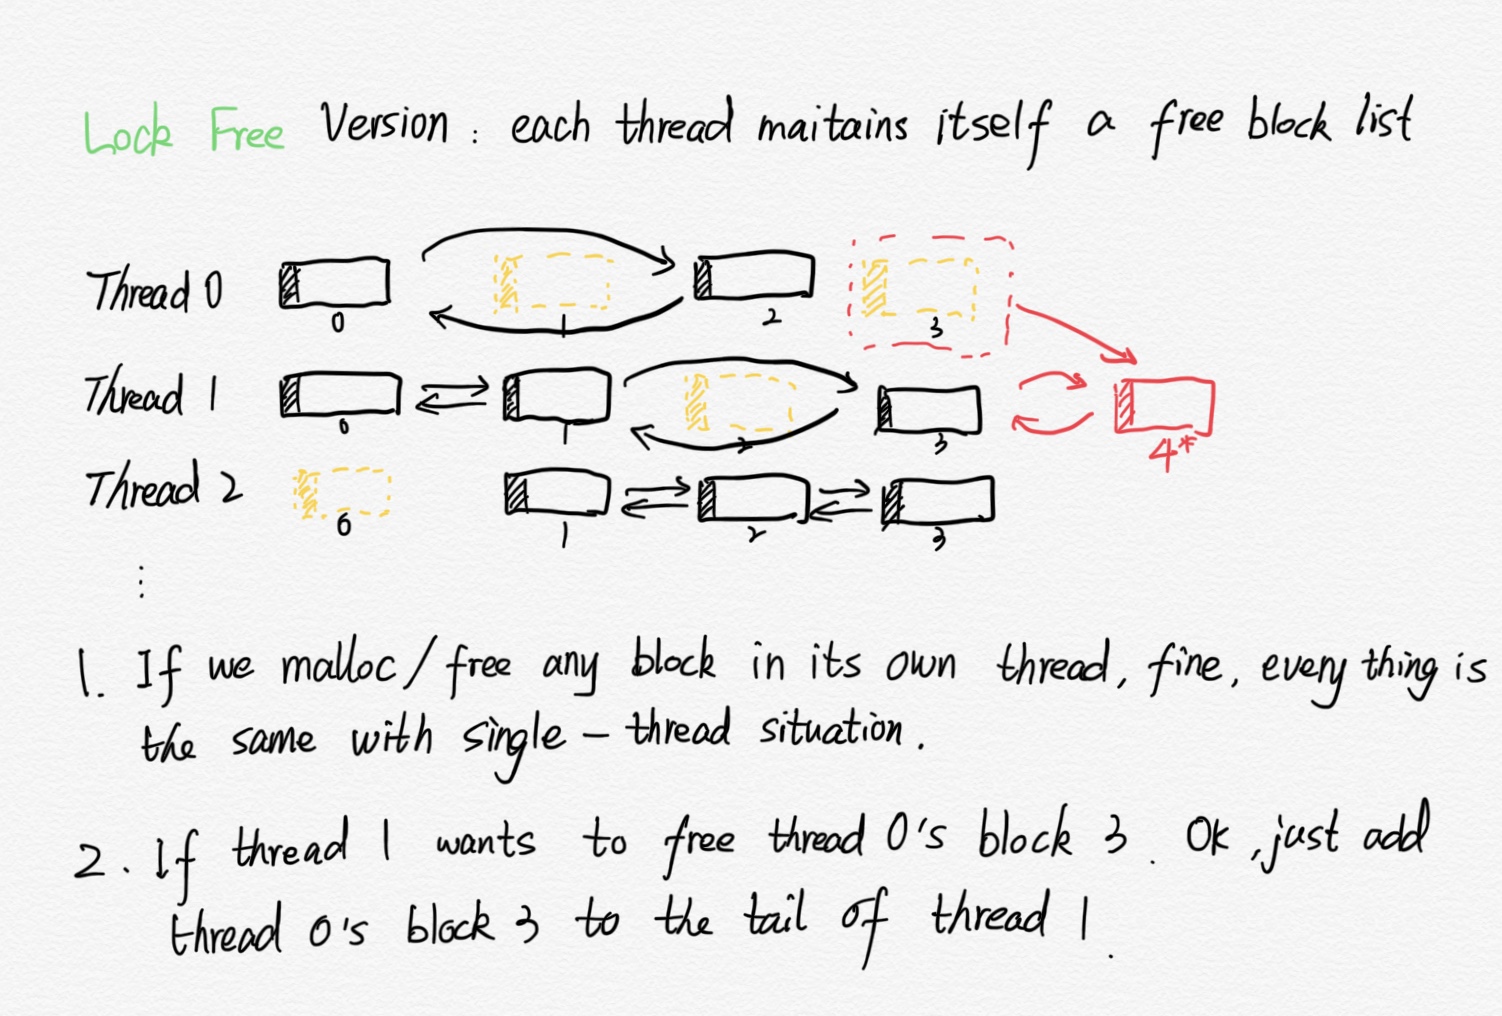 Lock Free Version : each thread maitains itself a free block list
Thread 0
0 1 2 3
Thread 1
0 1 2 3 4*
Thread 2
0 1 2 3
⋮
1. If we malloc/free any block in its own thread, fine, every thing is
the same with single-thread situation.
2. If thread 1 wants to free thread 0's block 3. Ok, just add
thread 0's block 3 to the tail of thread 1.